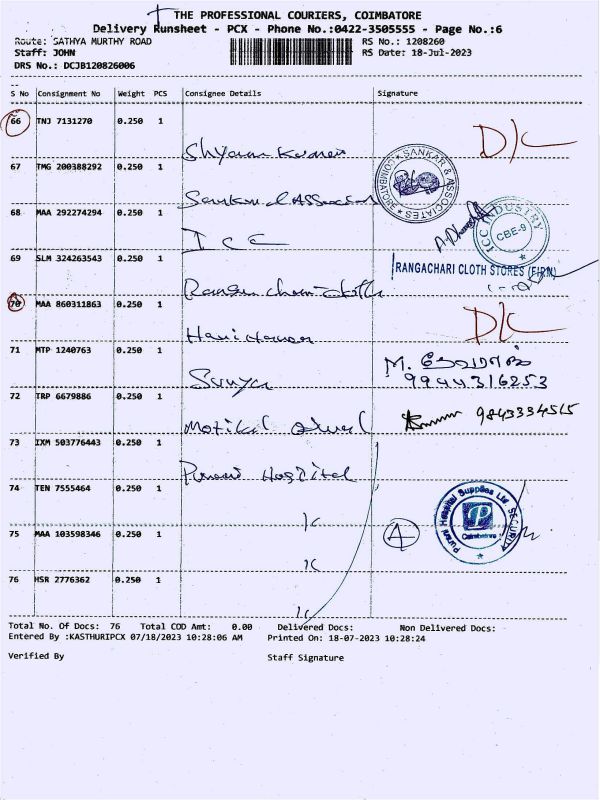 THE PROFESSIONAL COURIERS, COIMBATORE
Delivery Runsheet - PCX - Phone No.:0422-3505555 - Page No.:6
Route: SATHYA MURTHY ROAD RS No.: 1208260
Staff: JOHN RS Date: 18-Jul-2023
DRS No.: DCJB120826006
S No Consignment No Weight PCS Consignee Details Signature
66 TNJ 7131270 0.250 1 D/C
Shyam Kumar
67 TMG 200388292 0.250 1 SANKAR & ASSOCIATES COIMBATORE
68 MAA 292274294 0.250 1 ICC INDUSTRY CBE-9
I C C
69 SLM 324263543 0.250 1 RANGACHARI CLOTH STORES (FIRM)
70 MAA 860311863 0.250 1 D/C
71 MTP 1240763 0.250 1 M.
9944316253
Surya
72 TRP 6679886 0.250 1 9843334515
73 IXM 503776443 0.250 1
Purani Hospital
74 TEN 7555464 0.250 1 Purani Hospital Supplies Ltd. SECURITY P Coimbatore
75 MAA 103598346 0.250 1 A
76 HSR 2776362 0.250 1
Total No. Of Docs: 76 Total COD Amt: 0.00 Delivered Docs: Non Delivered Docs:
Entered By :KASTHURIPCX 07/18/2023 10:28:06 AM Printed On: 18-07-2023 10:28:24
Verified By Staff Signature